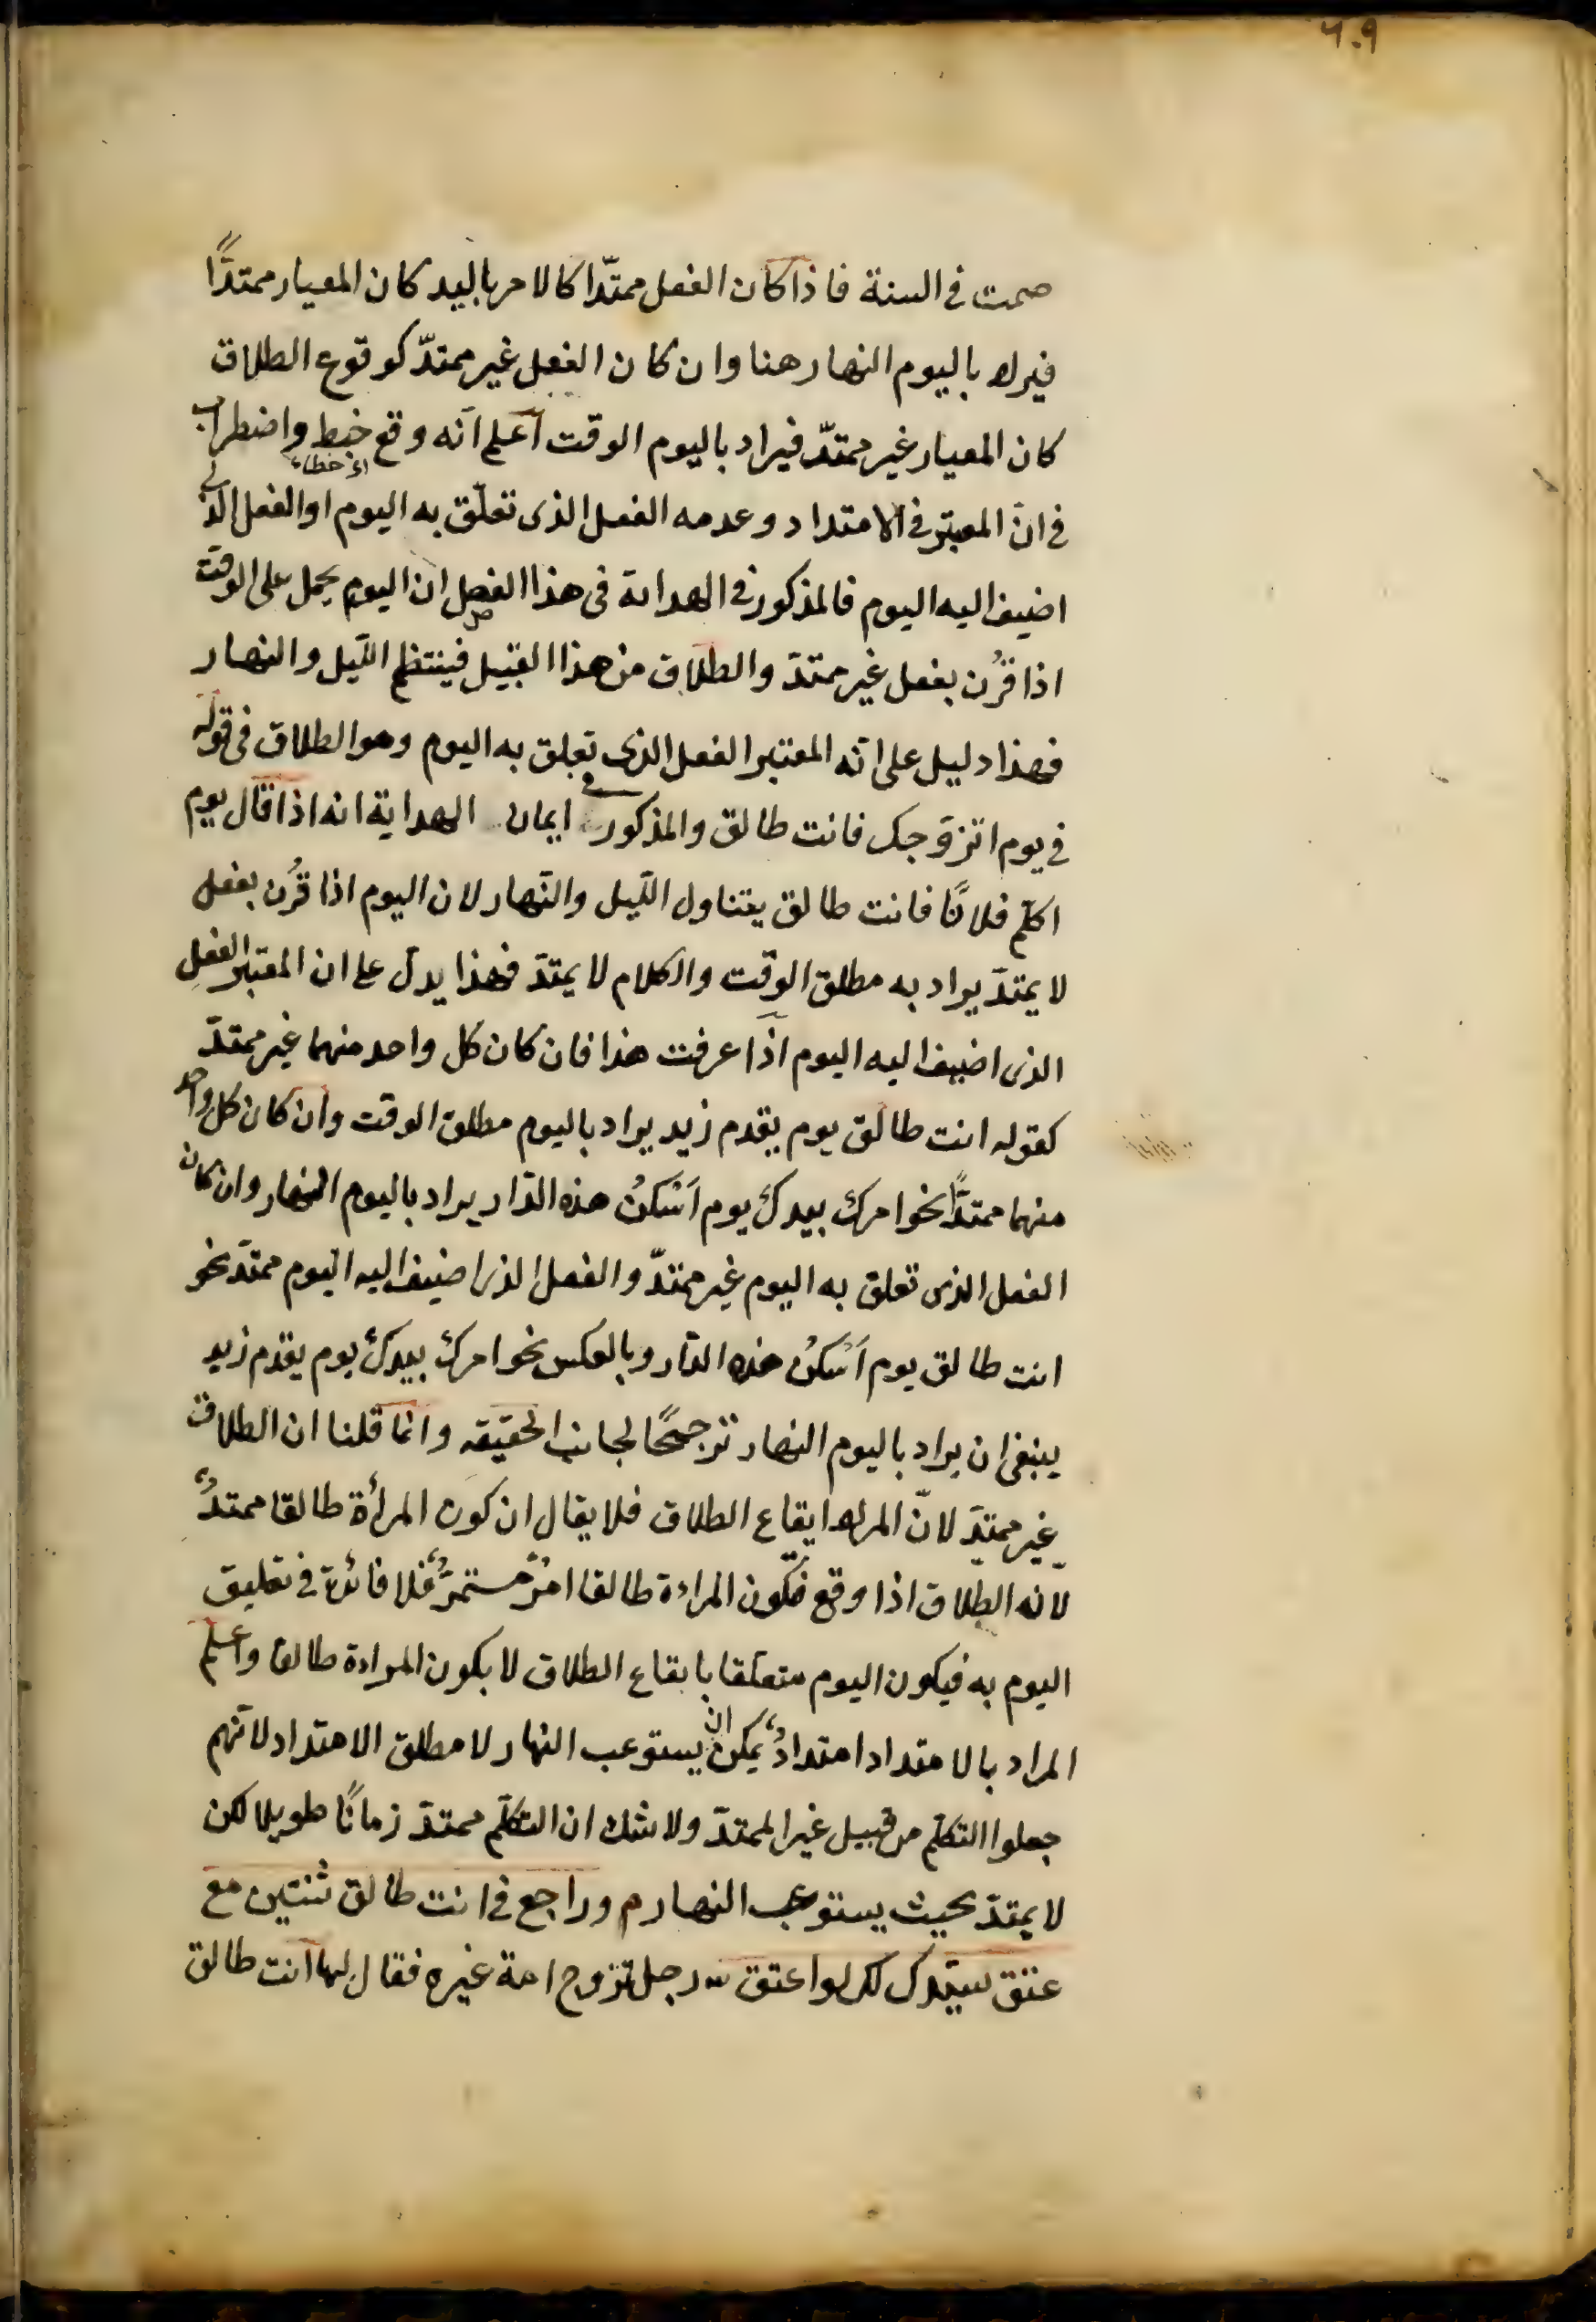 ٦٠٩
صمت في السنة فاذا كان الفعل ممتدّا كالامر باليد كان المعيار ممتدًّا
فيراد باليوم النهار هنا وان كان الفعل غير ممتدّ كوقوع الطلاق
كان المعيار غير ممتدّ فيراد باليوم الوقت اعلم انّه وقع خبط واضطراب
اى خطاء
في انّ المعتبر في الامتداد وعدمه الفعل الذى تعلّق به اليوم او الفعل الذى
اضيف اليه اليوم فالمذكور في الهداية فى هذا الفصل ان اليوم يحمل على الوقت
اذا قرُن بفعل غير ممتدّ والطلاق من هذا القبيل فينتظم اللّيل والنهار
فهذا دليل على انّه المعتبر الفعل الذى تعلق به اليوم وهو الطلاق فى قوله
في يوم اتزوّجك فانت طالق والمذكور في ايمان الهداية انه اذا قال يوم
اكلّم فلانًا فانت طالق يتناول اللّيل والنّهار لان اليوم اذا قرُن بفعل
لا يمتدّ يراد به مطلق الوقت والكلام لا يمتدّ فهذا يدلّ على ان المعتبر الفعلِ
الذى اضيف اليه اليوم اذا عرفت هذا فان كان كل واحد منهما غير ممتدّ
كقوله انت طالق يوم يقدم زيد يراد باليوم مطلق الوقت وان كان كل واحد
منهما ممتدًّا نحو امرك بيدك يوم اَسْكنُ هذه الدّار يراد باليوم النهار وان كان
الفعل الذى تعلق به اليوم غير ممتدّ والفعل الذى اضيف اليه اليوم ممتدّ نحو
انت طالق يوم اَسْكنُ هذه الدّار وبالعكس نحو امرك بيدك يوم يقدم زيد
ينبغى ان يراد باليوم النهار ترجيحًا لجانب الحقيقه وانما قلنا ان الطلاق
غير ممتدّ لانّ المراد ايقاع الطلاق فلا يقال ان كون المرأة طالقا ممتدٌّ
لانه الطلاق اذا وقع فكون المراءة طالقا امرٌ مستمرٌّ فلا فائدة في تعليق
اليوم به فيكون اليوم متعلّقا بايقاع الطلاق لا بكون المراءة طالقا واعلم
المراد بالامتداد امتدادٌ يمكن ان يستوعب النهار لا مطلق الامتداد لانّهم
جعلوا التكلّم من قبيل غير الممتدّ ولا شك ان التكلّم ممتدّ زمانًا طويلا لكن
لا يمتدّ بحيث يستوعب النهار م وراجع في انت طالق ثنتين مع
عتق سيّدك لك لو اعتق ش رجل تزوج امة غيره فقال لها انت طالق